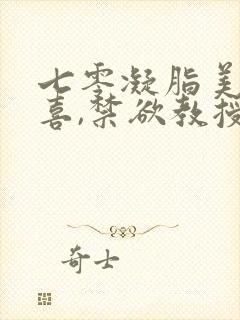 七零凝脂美
喜,禁欲教授
奇士